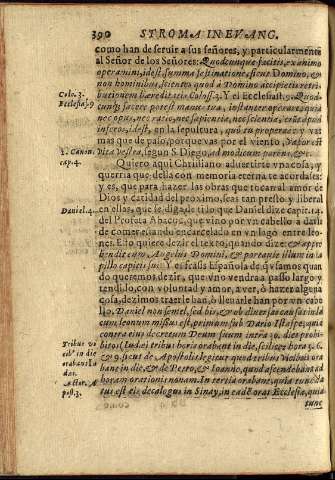 390 STROMA IN EVANG.
como han de seruir a sus señores, y particularmente
al Señor de los Señores: Quodcunque facitis, ex animo
operamini, idest, summa festinatione, sicut Domino, &
non hominibus, scientes quod à Domino accipietis retri-
Colo. 3. butionem hæreditatis, Coloss. 3. Y el Ecclesiast. 9. Quod-
Ecclesias. 9 cunque facere potest manus tua, instanter operare; quia
nec opus, nec ratio, nec sapientia, nec scientia, erunt apud
inferos, idest, en la sepultura,
mas que de paso, porque vas por el viento,
I. Canon. vita vestra, segun S. Diego, ad modicum parens, &
cap. 4. Quiero aqui Christiano aduertirte vna cosa, y
querria que della con memoria eterna te acordases:
y es, que para hazer las obras que tocan al amor de
Dios y caridad del proximo, seas tan presto y liberal
Daniel. 4. en ellas, que se diga de ti lo que Daniel dize capit. 14.
del Profeta Abacuc, que vino por vn cabello a darle
de comer, estando encarcelado en vn lago entre leo-
nes. Esto quiere dezir el texto, quando dize: & appre
hendit eum Angelus Domini, & portauit illum in ca
pillo capitis sui. Y es frasis Española de q̃ vsamos quan
do queremos dezir, que vno vendra a passo largo y
tendido, con voluntad y amor, a ver, ò hazer alguna
cosa, dezimos traerle han, ò lleuarle han por vn cabe
llo. Daniel non semel, sed bis, & ob diuersas causas in la
cum leonum missus est, primum sub Dario Istaspe, quia
contra eius decretum Deum suum intra 30. dies prohi-
Tribus vi bitos (Iudæi tribus horis orabant in die, scilicet hora 3. 6.
cib⁹ in die & 9. sicut de Apostolis legitur, quod tribus vicibus ora
orabant Iu bant in die, & de Petro, & Ioanno, quod ascendebant ad
dæi. horam orationis nonam. In tertia orabant, quia tunc da
Actor. A tus est eis decalogus in Sinay, in eadē orat Ecclesia, quia
post. 3. tunc